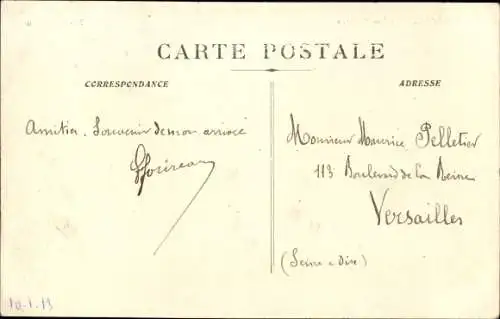 CARTE POSTALE
CORRESPONDANCE
ADRESSE
Amitiés. Souvenir de mon arrivée
Monsieur Maurice Pelletier
113 Boulevard de la Reine
Versailles
(Seine & Oise)
10-1-13